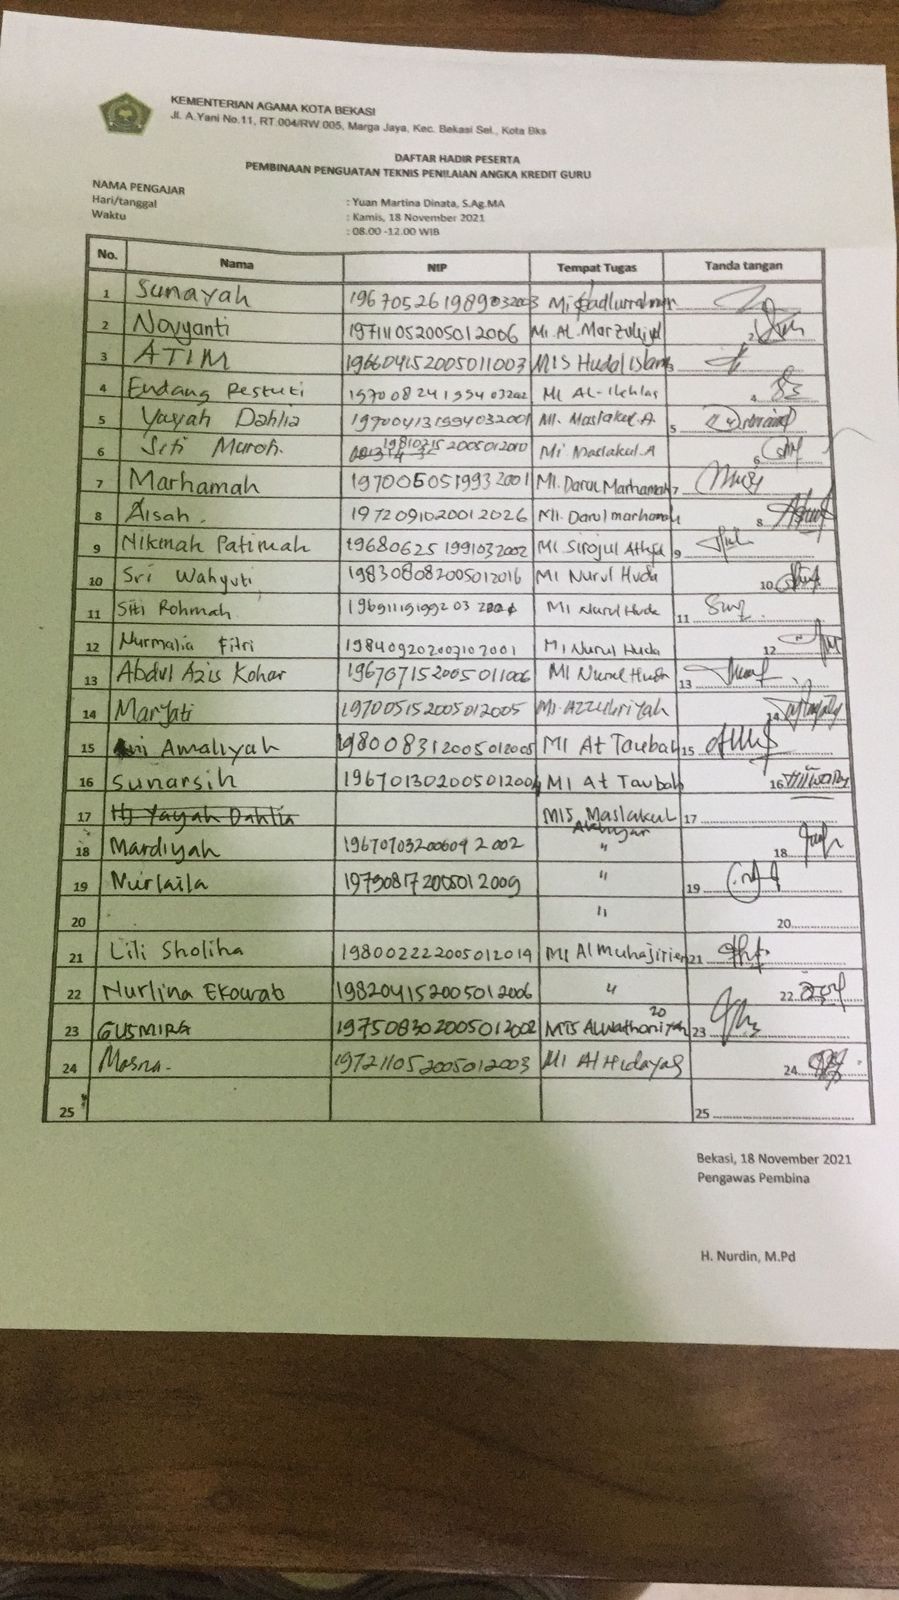 KEMENTERIAN AGAMA KOTA BEKASI
Jl. A.Yani No.11, RT.004/RW.005, Marga Jaya, Kec. Bekasi Sel., Kota Bks
DAFTAR HADIR PESERTA
PEMBINAAN PENGUATAN TEKNIS PENILAIAN ANGKA KREDIT GURU
NAMA PENGAJAR : Yuan Martina Dinata, S.Ag.MA
Hari/tanggal : Kamis, 18 November 2021
Waktu : 08.00 -12.00 WIB
No. Nama NIP Tempat Tugas Tanda tangan
1 Sunayah 196705261989032003 Mi
2 Novyanti 197111052005012006 Mi. AL. Marzuqiyah 2
3 ATIM 196604152005011003 MIS Hudal Islam 3
4 Endang Restuti MI AL-Ikhlas 4
5 Yayah Dahlia 197004131994032001 MI. Maslakul.A 5
6 Siti Muroh. 198102152005012010 Mi Maslakul.A 6
7 Marhamah 1970050519932001 MI. Darul Marhamah 7
8 Aisah. 1972091020012026 MI. Darul marhamah 8
9 Nikmah Patimah 196806251991032002 MI Sirojul 9
10 Sri Wahyuti 198308082005012016 MI Nurul Huda 10
11 Siti Rohmah MI Nurul Huda 11
12 Nurmalia Fitri 198409202007102001 MI Nurul Huda 12
13 Abdul Azis Kohar 196707152005011006 MI Nurul Huda 13
14 Maryati 197005152005012005 MI. Azzuhriyah 14
15 Amaliyah 198008312005012005 MI At Taubah 15
16 Sunarsih MI At Taubah 16
17 Hj Yayah Dahlia MIS Maslakul 17
Akhyar
18 Mardiyah 196707032006042002 " 18
19 Nurlaila 197908172005012009 " 19
20 " 20
21 Lili Sholiha 198002222005012019 MI Al Muhajirien 21
22 Nurlina Ekowab 198204152005012006 " 22
23 GUSMIRA 197508302005012002 MTS Alwathoniyah 20 23
24 Masna. 197211052005012003 MI Al Hidayah 24
25 25
Bekasi, 18 November 2021
Pengawas Pembina
H. Nurdin, M.Pd